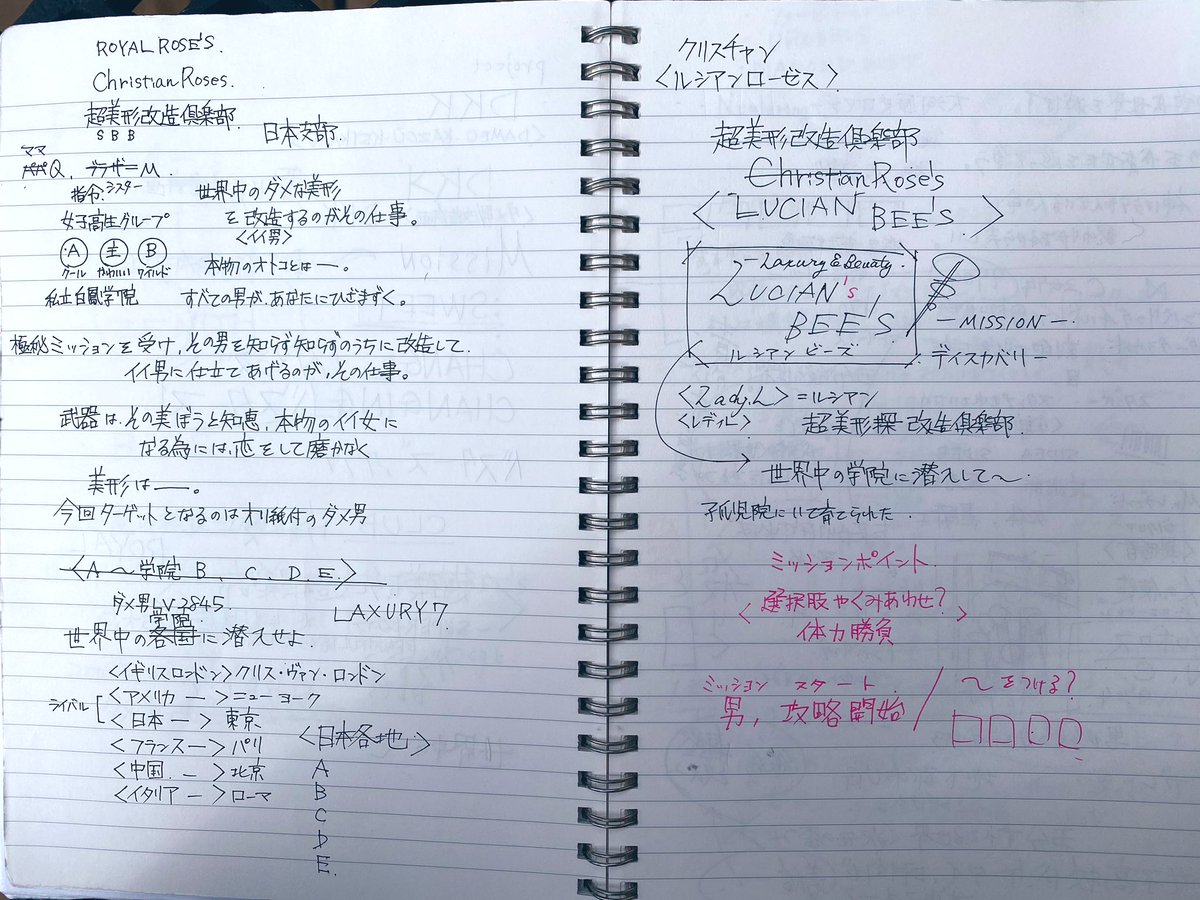 ROYAL ROSE'S.
Christian Roses.
超美形改造倶楽部.
S B B
日本支部.
ママ
パパQ、ブラザーM.
指令.シスター
世界中のダメな美形
を改造するのがその仕事。
<イイ男>
女子高生グループ
A 主 B
クール かわいい ワイルド
本物のオトコとは―。
私立白鳳学院 すべての男が、あなたにひざまずく。
極秘ミッションを受け,その男を知らず知らずのうちに改造して.
イイ男に仕立てあげるのが,その仕事。
武器は.その美ぼうと知恵,本物のイイ女に
なる為には、恋をして磨かなく
美形は―。
今回ターゲットとなるのはオリ紙付のダメ男
<A ~学院 B、C、D.E.>
ダメ男LV3845.
LAXURY7.
学院
世界中の各国に潜入せよ.
<イギリスロンドン>クリス・ヴァン・ロンドン
ライバル
<アメリカ ―>ニューヨーク
<日本―> 東京
<フランス―> パリ
<中国.―> 北京
<イタリア―> ローマ
<日本各地>
A
B
C
D
E.
クリスチャン
<ルシアンローゼス>
超美形改造倶楽部
Christian Rose's
<LUCIAN BEE'S>
―Laxury & Beuaty.
LUCIAN's
BEE'S
ルシアンビーズ
―MISSION―.
ディスカバリー
<Lady.L>=ルシアン
<レディL>
超美形探 改造倶楽部.
世界中の学院に潜入して~
孤児院にいて育てられた.
ミッションポイント
<選択肢やくみあわせ?>
体力勝負
ミッション スタート.
男,攻略開始
~をつける?